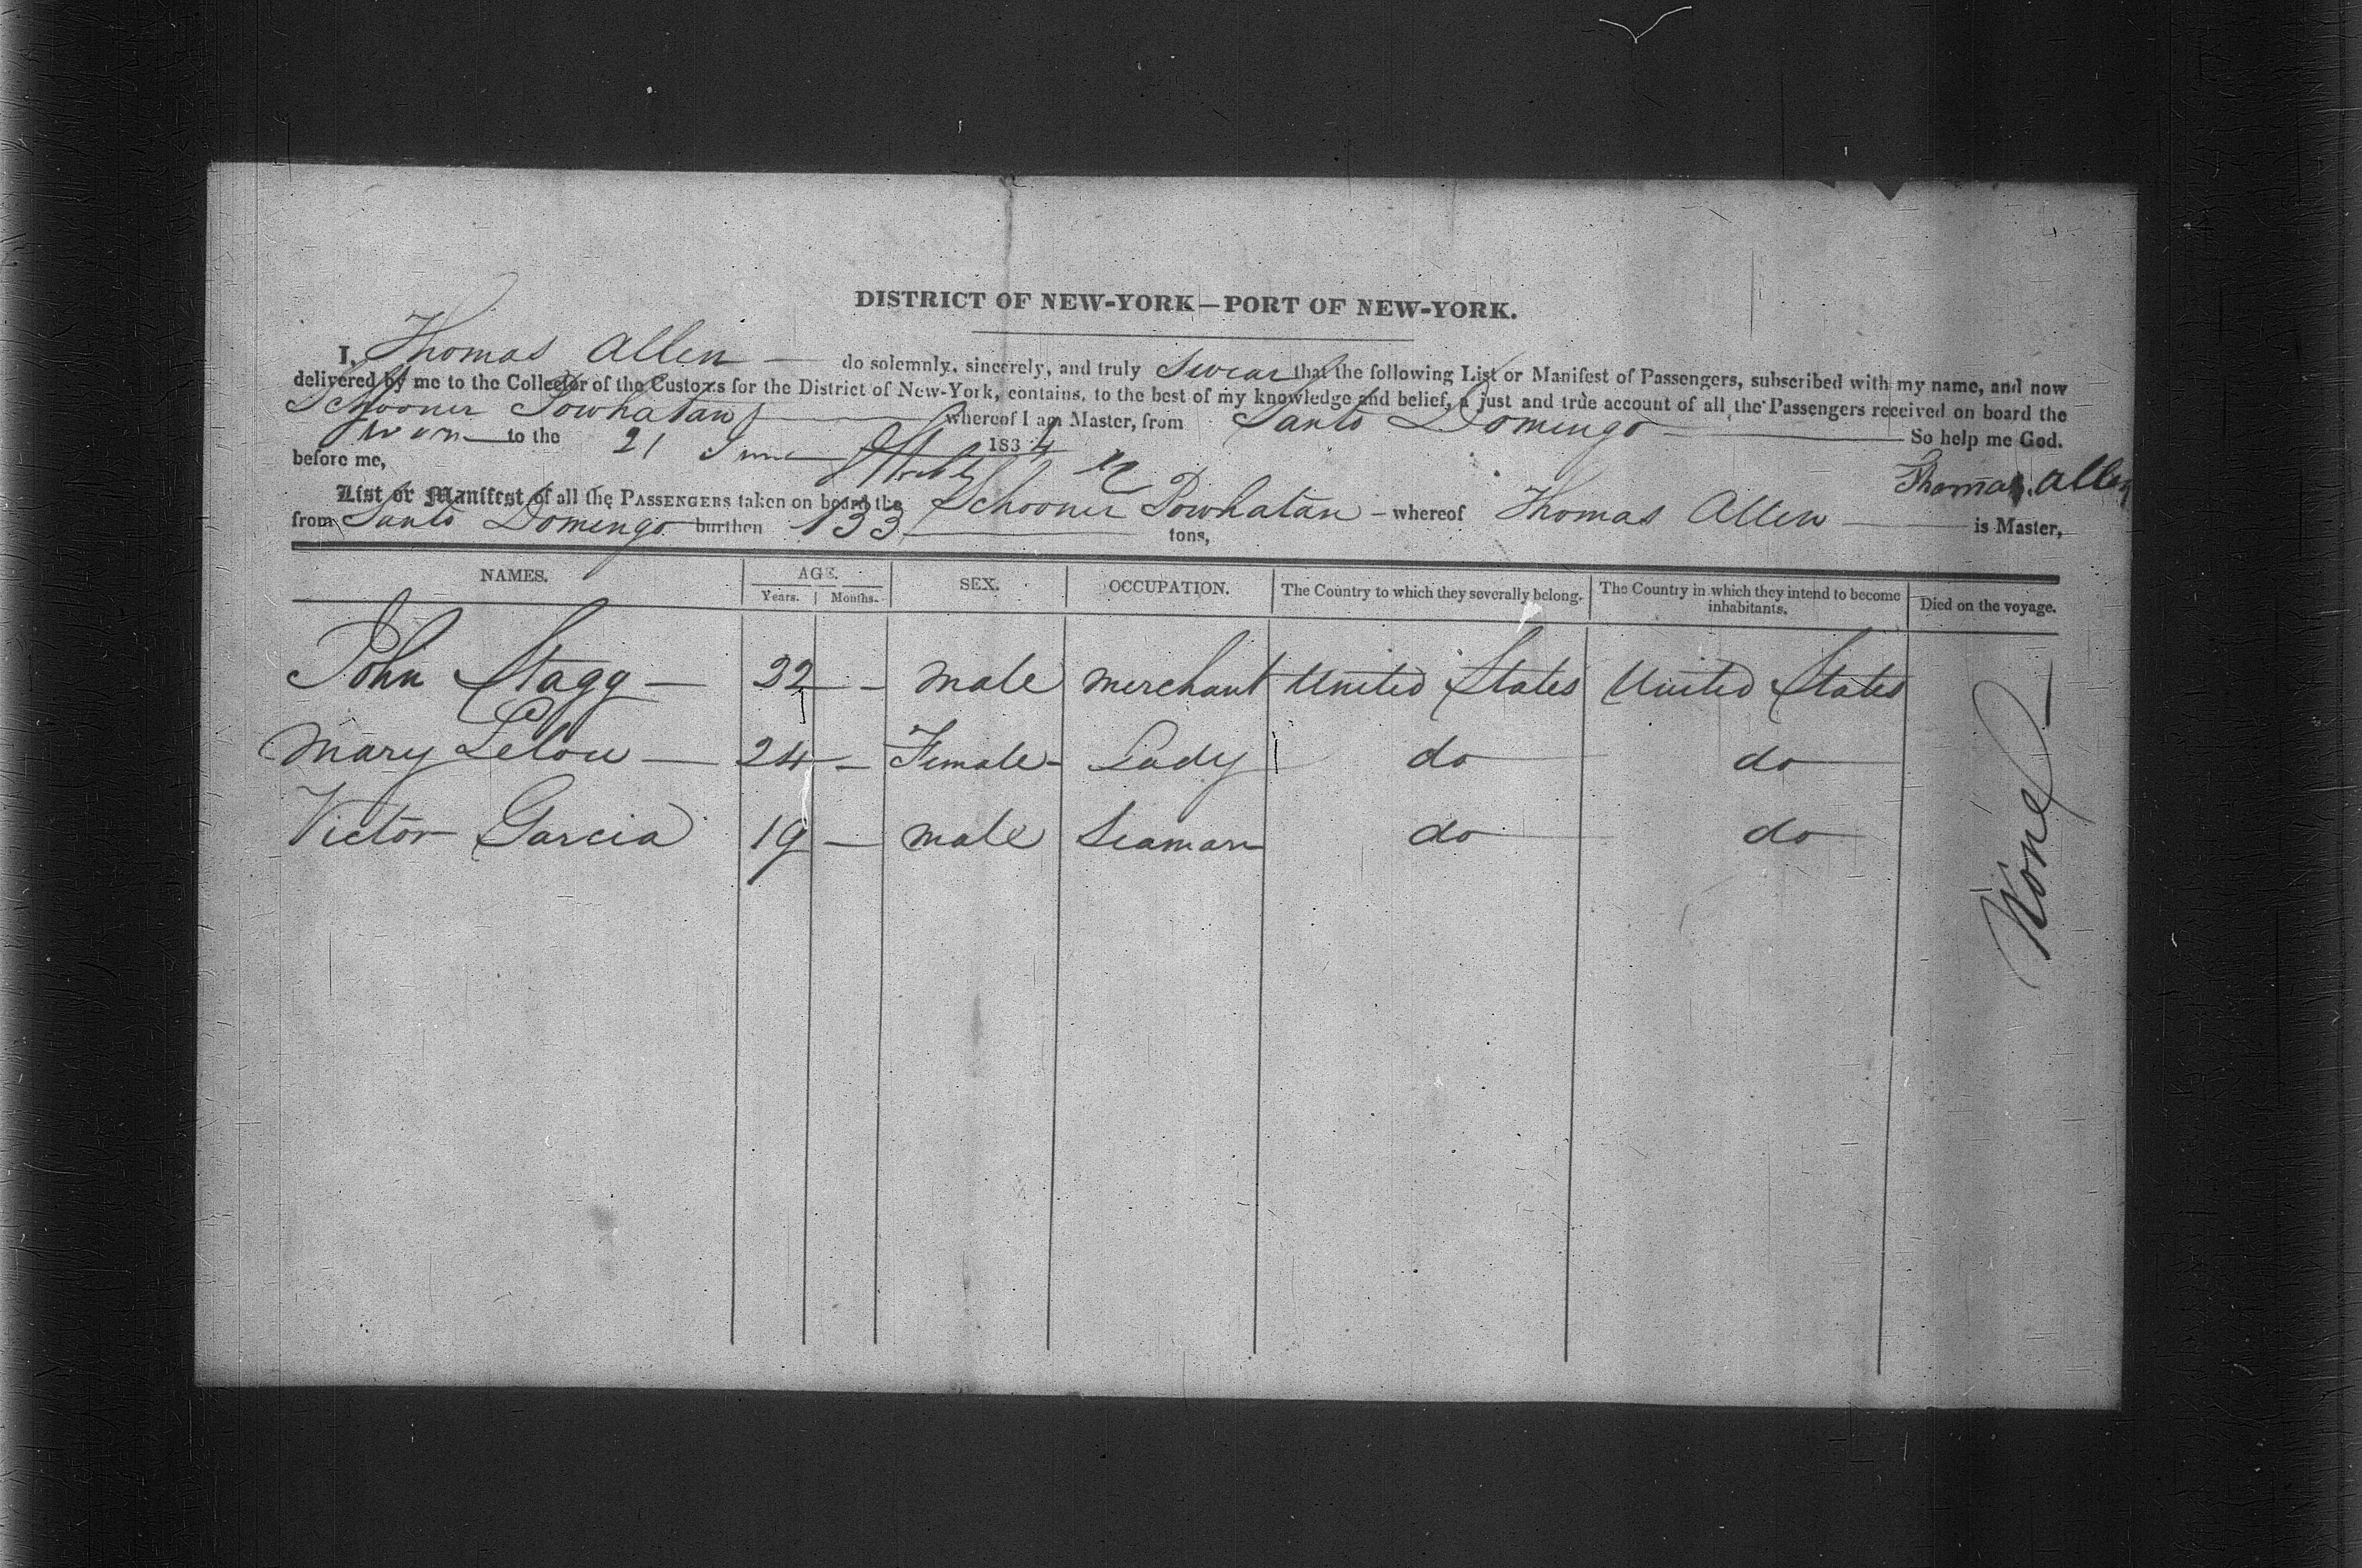 DISTRICT OF NEW-YORK—PORT OF NEW-YORK.
I, Thomas Allen — do solemnly, sincerely, and truly Swear that the following List or Manifest of Passengers, subscribed with my name, and now
delivered by me to the Collector of the Customs for the District of New-York, contains, to the best of my knowledge and belief, a just and true account of all the Passengers received on board the
Schooner Powhatan — whereof I am Master, from Santo Domingo — So help me God.
Sworn to the 21 June 1834
before me, Thomas Allen
List or Manifest of all the PASSENGERS taken on board the Schooner Powhatan — whereof Thomas Allen — is Master,
from Santo Domingo burthen 133 — tons,
NAMES. AGE. SEX. OCCUPATION. The Country to which they severally belong. The Country in which they intend to become inhabitants. Died on the voyage.
Years. Months.
John Stagg — 32 — male merchant United States United States
Mary — 24 — Female Lady do do
Victor Garcia 19 — male Seaman do do
None